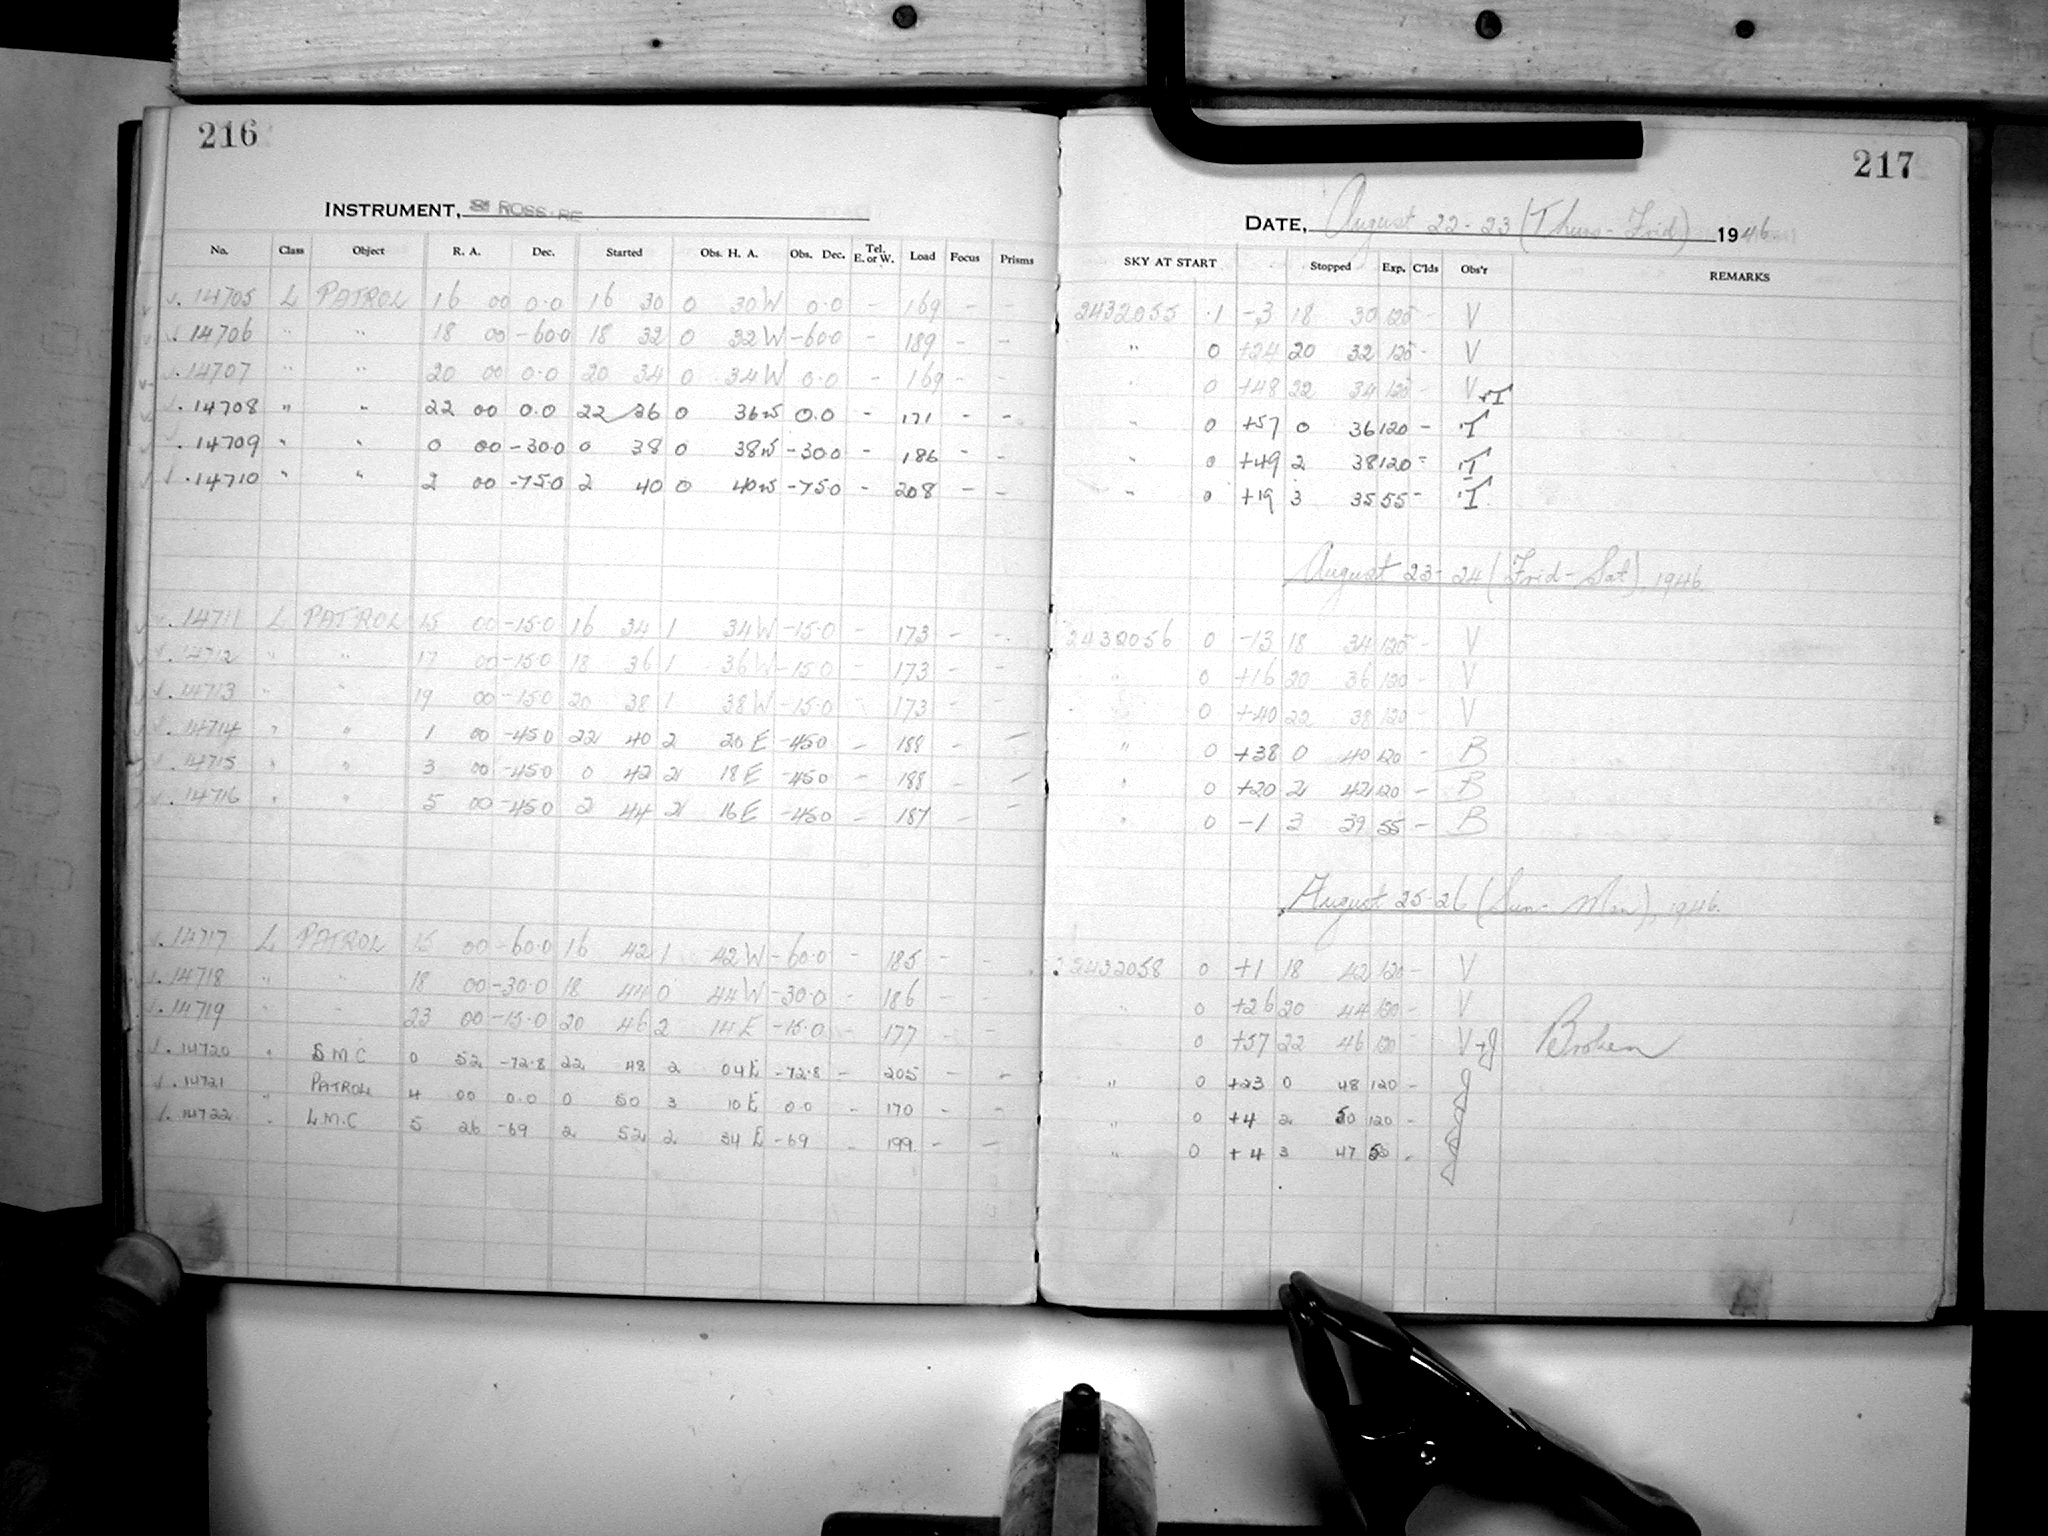 216
INSTRUMENT, ROSS-RE
No. Class Object R. A. Dec. Started Obs. H. A. Obs. Dec. Tel. E. or W. Load Focus Prisms
√. 14705 L PATROL 16 00 0.0 16 30 0 30W 0.0 - 169 - -
√. 14706 " " 18 00 -60.0 18 32 0 32W -60.0 - 189 - -
√. 14707 " " 20 00 0.0 20 34 0 34W 0.0 - 169 - -
√. 14708 " " 22 00 0.0 22 36 0 36W 0.0 - 171 - -
√. 14709 " " 0 00 -30.0 0 38 0 38W -30.0 - 186 - -
√. 14710 " " 2 00 -75.0 2 40 0 40W -75.0 - 208 - -
√. 14711 L PATROL 15 00 -15.0 16 34 1 34W -15.0 - 173 - -
√. 14712 " " 17 00 -15.0 18 36 1 36W -15.0 - 173 - -
√. 14713 " " 19 00 -15.0 20 38 1 38W -15.0 - 173 - -
√. 14714 " " 1 00 -45.0 22 40 2 20E -45.0 - 188 - -
√. 14715 " " 3 00 -45.0 0 42 2 18E -45.0 - 188 - -
√. 14716 " " 5 00 -45.0 2 44 2 16E -45.0 - 187 - -
√. 14717 L PATROL 15 00 -60.0 16 42 1 42W -60.0 - 185 - -
√. 14718 " " 18 00 -30.0 18 44 0 44W -30.0 - 186 - -
√. 14719 " " 23 00 -15.0 20 46 2 14E -15.0 - 177 - -
√. 14720 " S.M.C 0 52 -72.8 22 48 2 04E -72.8 - 205 - -
√. 14721 " PATROL 4 00 0.0 0 50 3 10E 0.0 - 170 - -
√. 14722 " L.M.C 5 26 -69 2 52 2 34E -69 - 199 - -
217
DATE, August 22-23 (Thurs-Frid) 1946
SKY AT START Stopped Exp. C'lds Obs'r REMARKS
2432055 .1 -3 18 30 120 - V
" 0 +24 20 32 120 - V
" 0 +48 22 34 120 - V+T
" 0 +57 0 36 120 - T
" 0 +49 2 38 120 - T
" 0 +19 3 35 55 - T
August 23-24 (Frid-Sat), 1946
2432056 0 -13 18 34 120 - V
" 0 +16 20 36 120 - V
" 0 +40 22 38 120 - V
" 0 +38 0 40 120 - B
" 0 +20 2 42 120 - B
" 0 -1 3 39 55 - B
August 25-26 (Sun-Mon), 1946
2432058 0 +1 18 42 120 - V
" 0 +26 20 44 120 - V
" 0 +57 22 46 120 - V+J Broken
" 0 +23 0 48 120 -
" 0 +4 2 50 120 -
" 0 +4 3 47 55 -